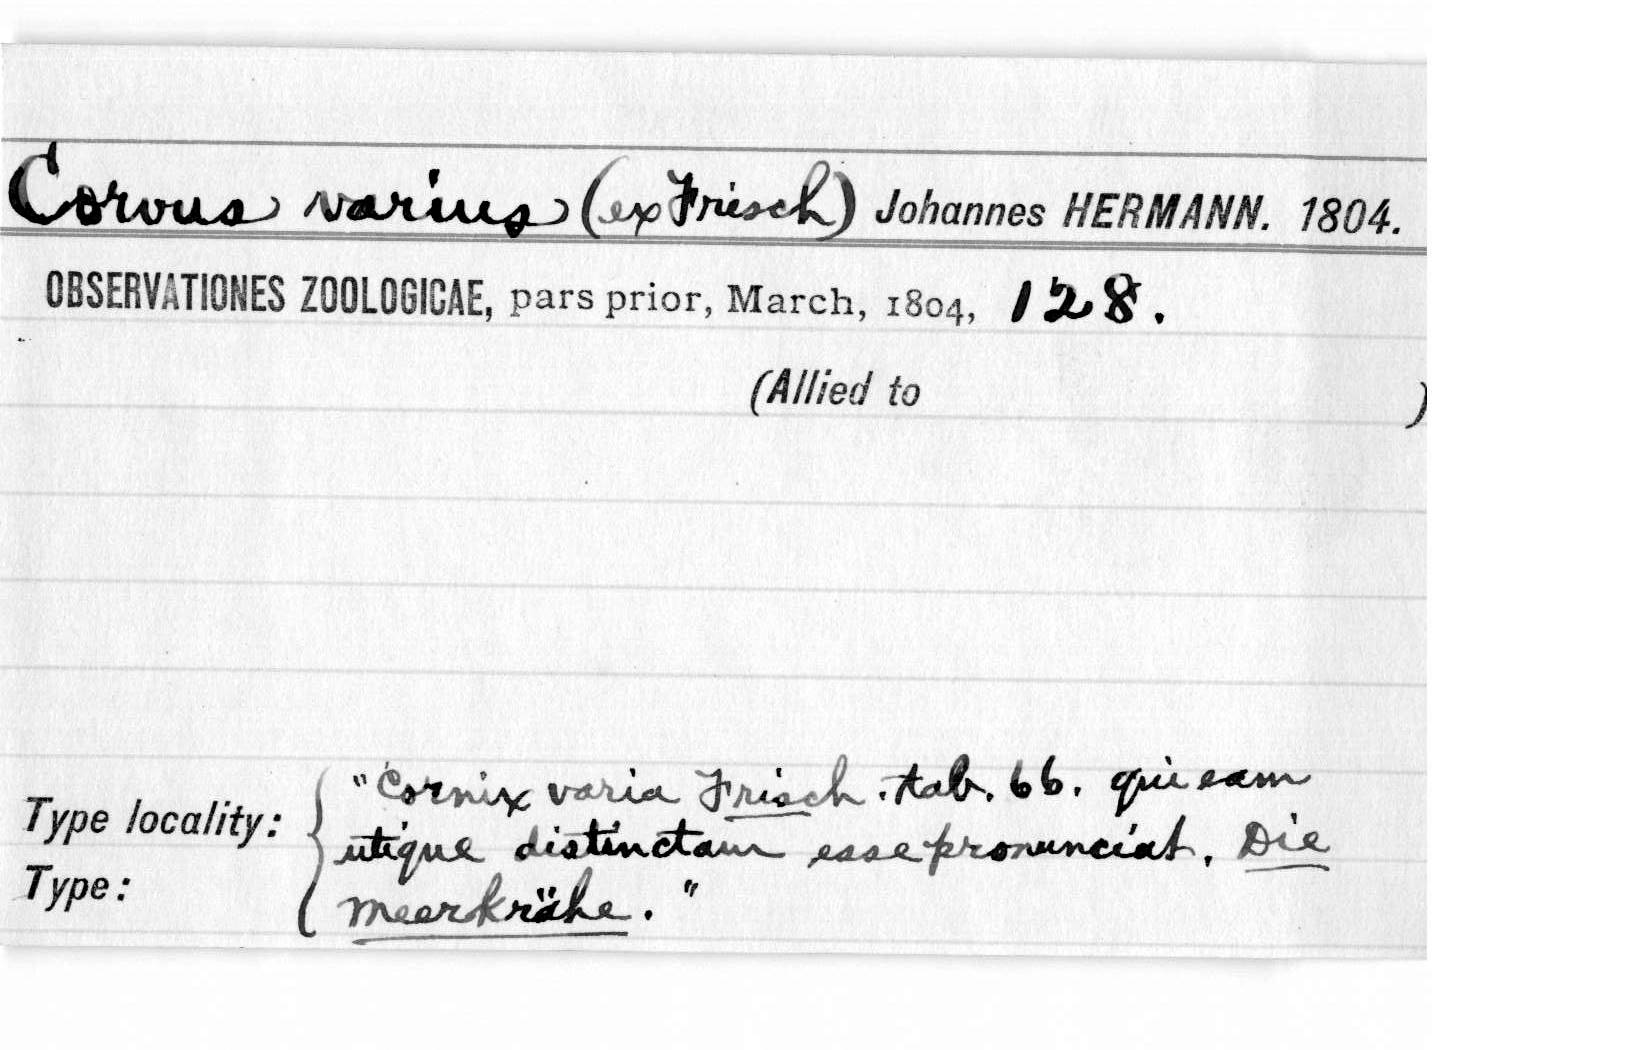 Corvus varius (ex Frisch) Johannes HERMANN. 1804.
OBSERVATIONES ZOOLOGICAE, pars prior, March, 1804, 128.
(Allied to )
Type locality: { "Cornix varia Frisch. tab. 66. qui eam
utique distinctam esse pronunciat. Die
Type: meerkrähe."